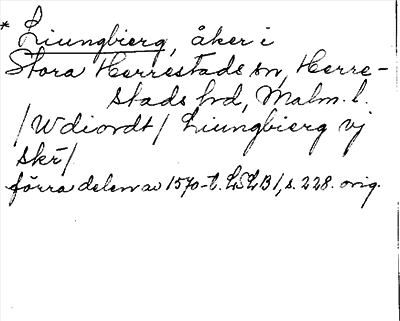 * Liungbierg, åker i
Stora Herrestads sn, Herre-
stads hd, Malm. l.
/Wdiordt/ Liungbierg vj
skr̄/
förra delen av 1570-t. LSLB 1, s. 228. orig.